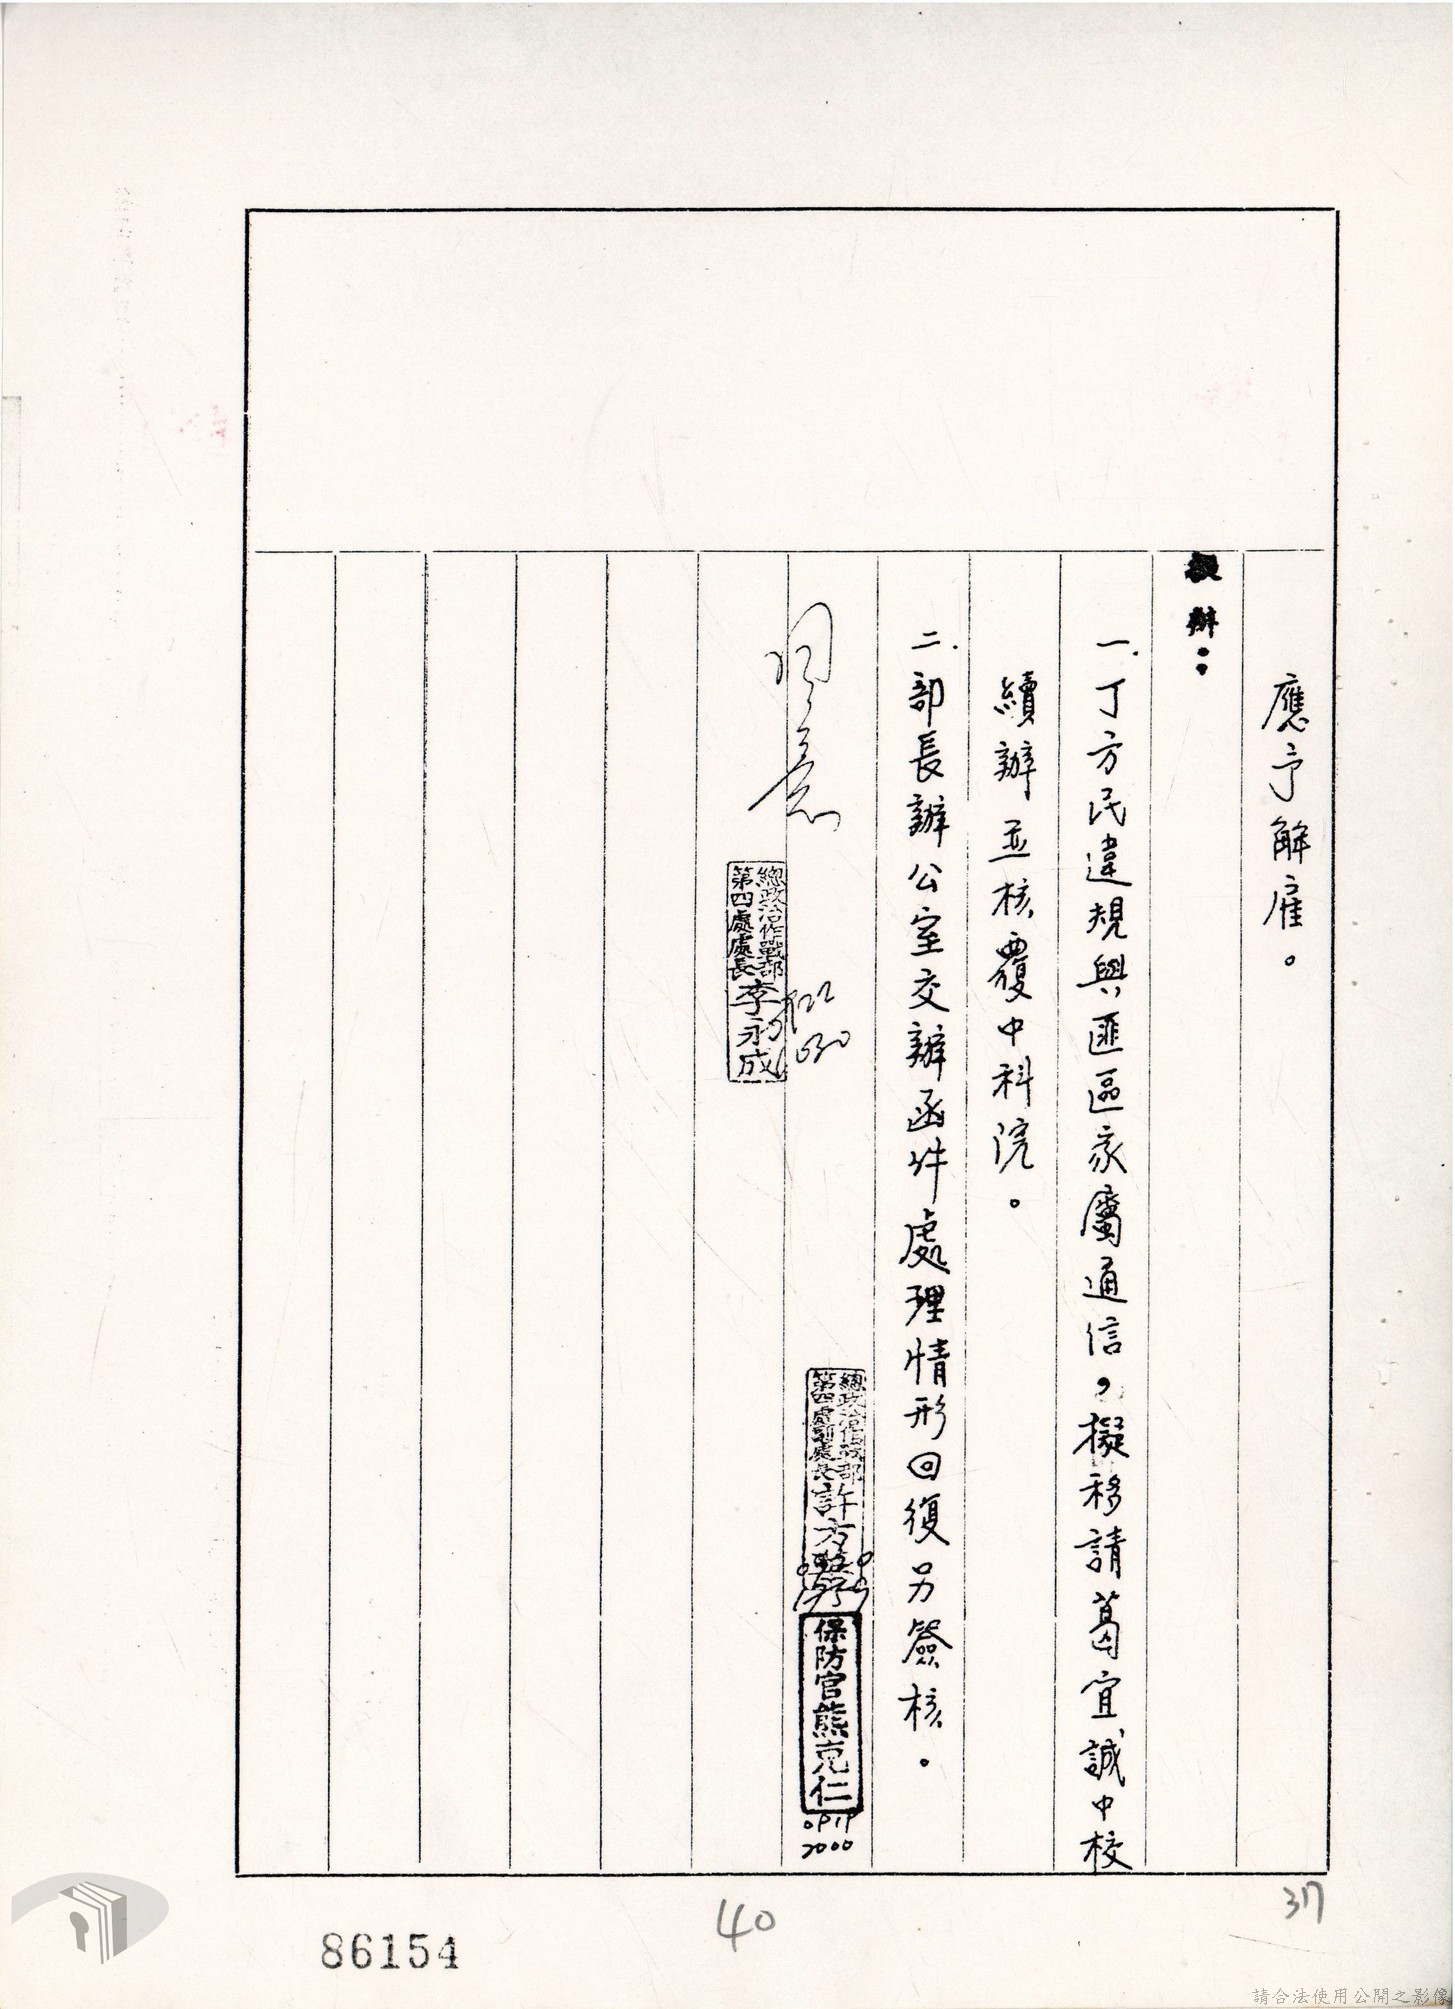 應予解雇。
擬辦：
一、丁方民違規與匪區家屬通信，擬移請葛宜誠中校
續辦並核覆中科院。
二、部長辦公室交辦函件處理情形回復另簽核。
同意
總政治作戰部
第四處處長李永成
總政治作戰部
第四處副處長許方
保防官熊克仁
0919
2000
37
40
86154
請合法使用公開之影像